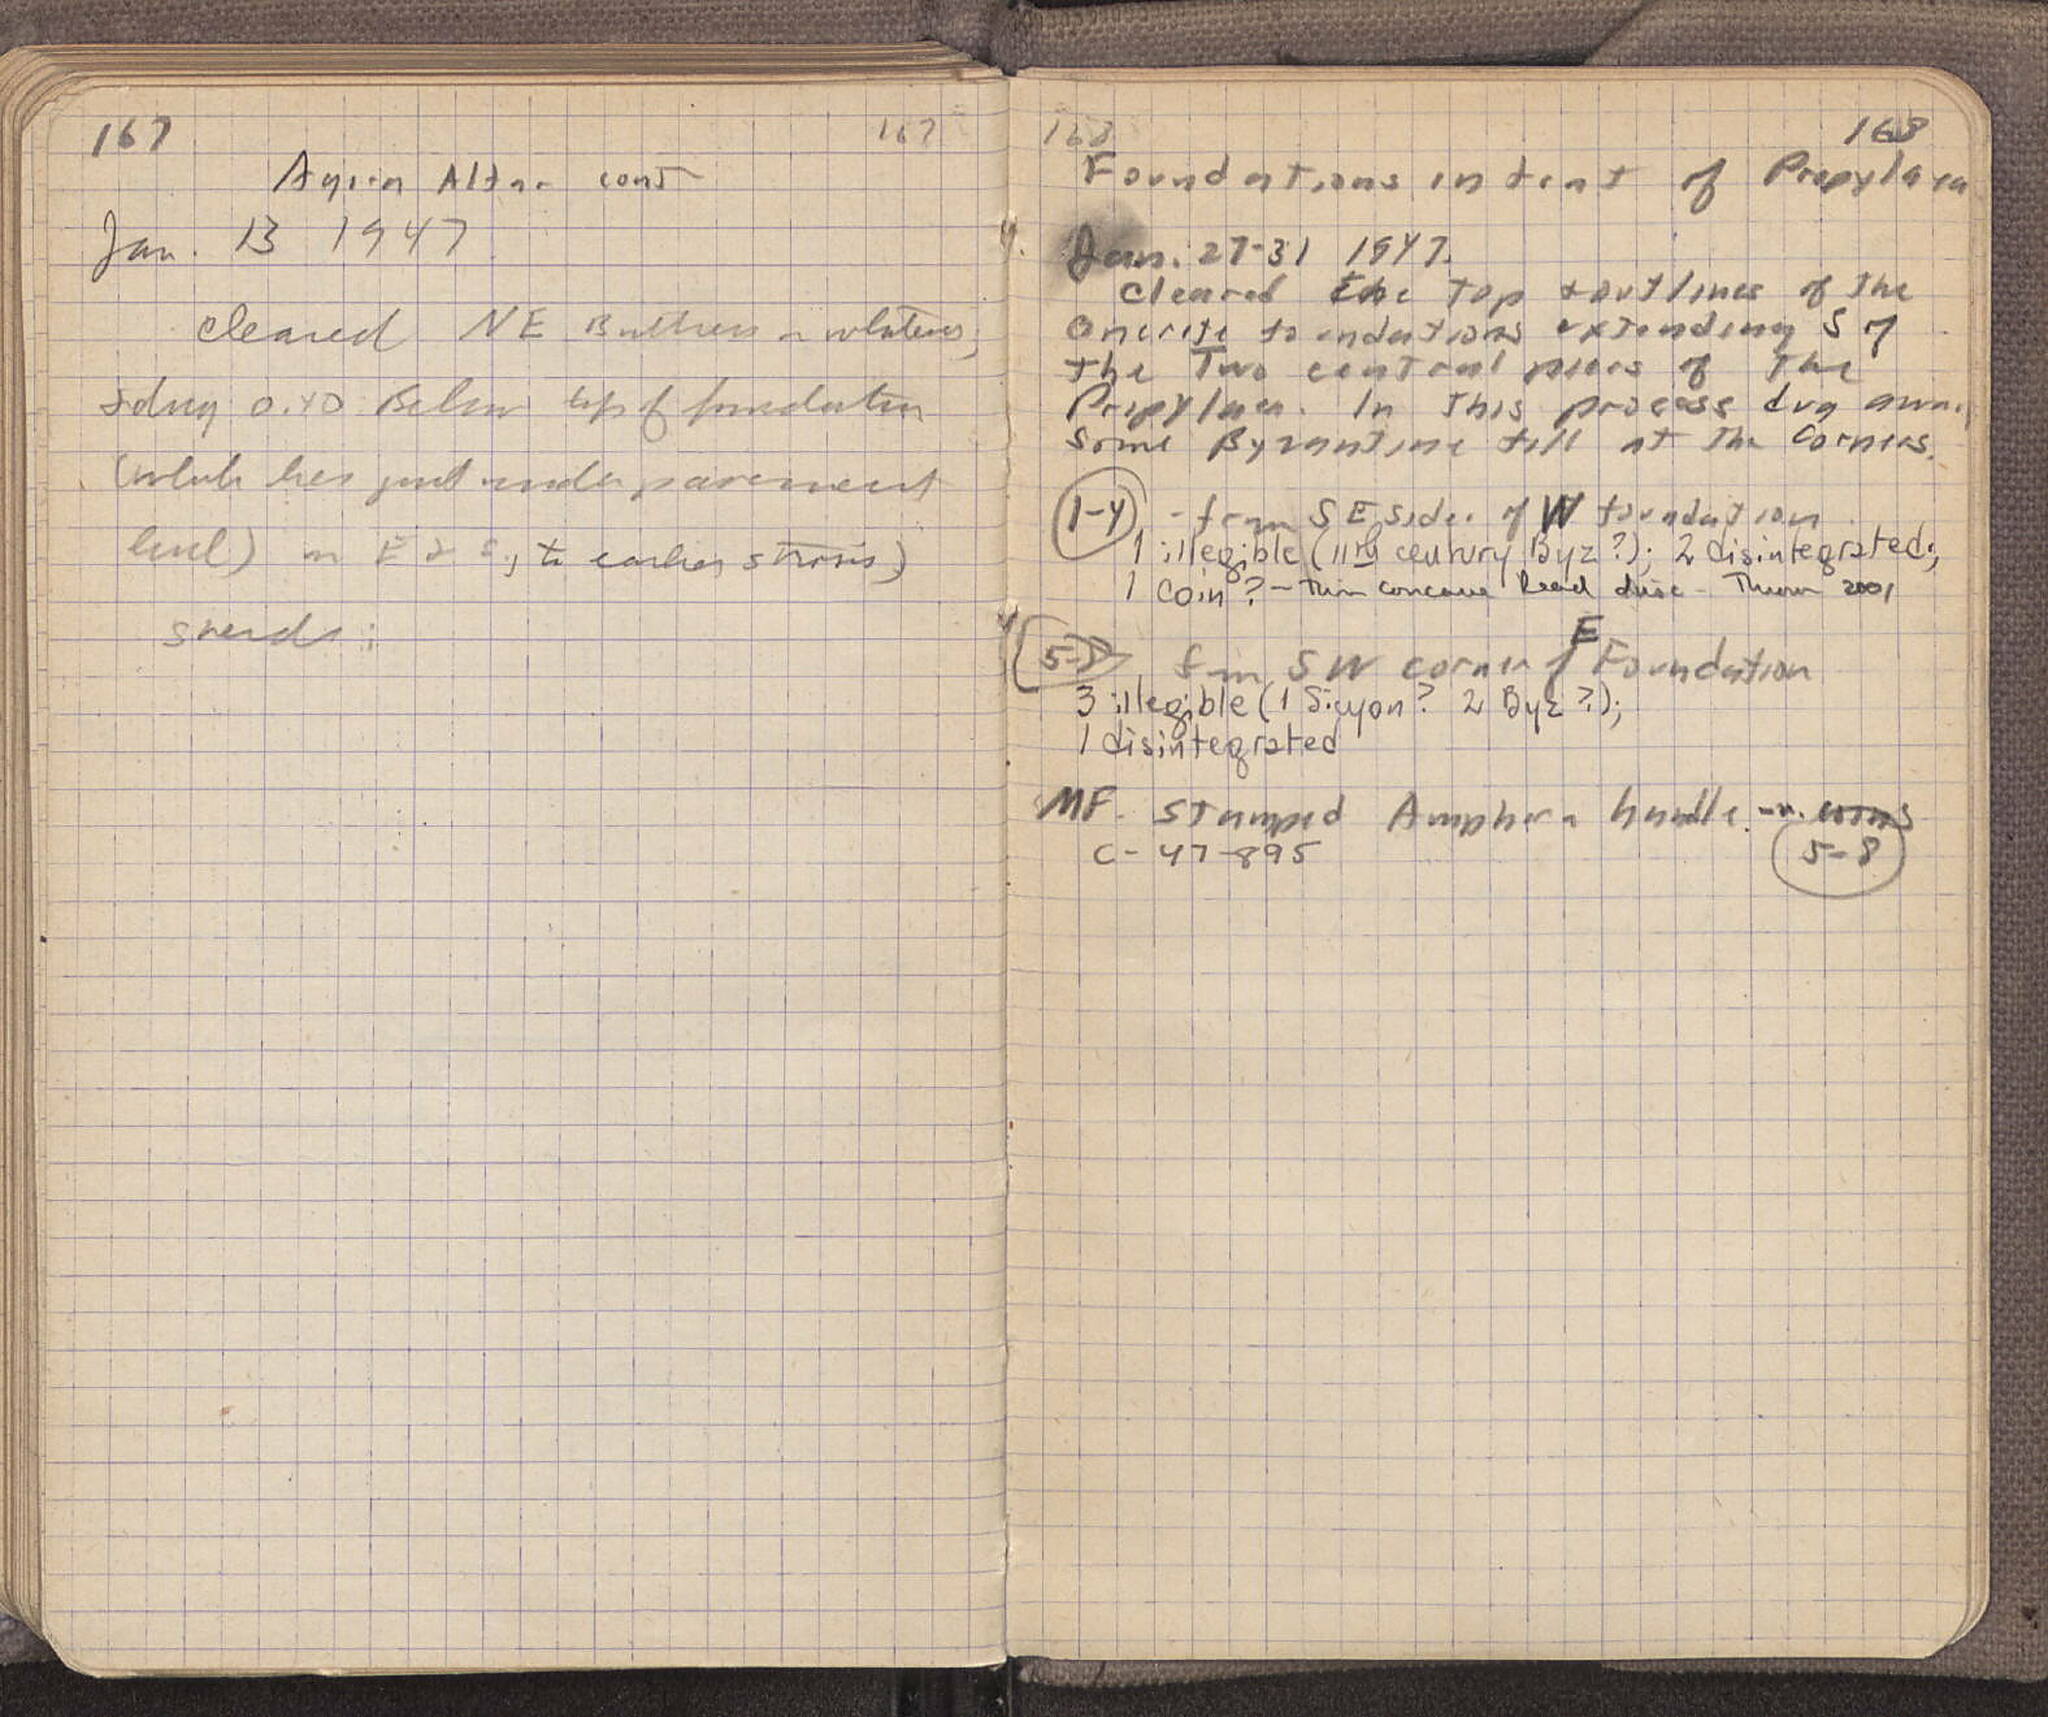 167 167
Agora Altar cont
Jan. 13 1947
cleared NE Buttress
& dug 0.40 Below top of foundation
(which lies just under pavement
level) on E & S, to earlier strosis,
sherds:
168 168
Foundations in front of Propylaea
Jan. 27-31 1947.
Cleared the top & outlines of the
oncrete foundations extending S of
the Two central piers of the
Propylaea. In this process dug away
some Byzantine fill at the corners.
1-4 - from SE side of W foundation
1 illegible (11th century Byz?); 2 disintegrated;
1 coin? - thin concave lead disc - Thrown 2001
5-8 from SW corner of E Foundation
3 illegible (1 Sicyon? 2 Byz?);
1 disintegrated
MF. Stamped Amphora handle - w. coins
C-47-895 5-8